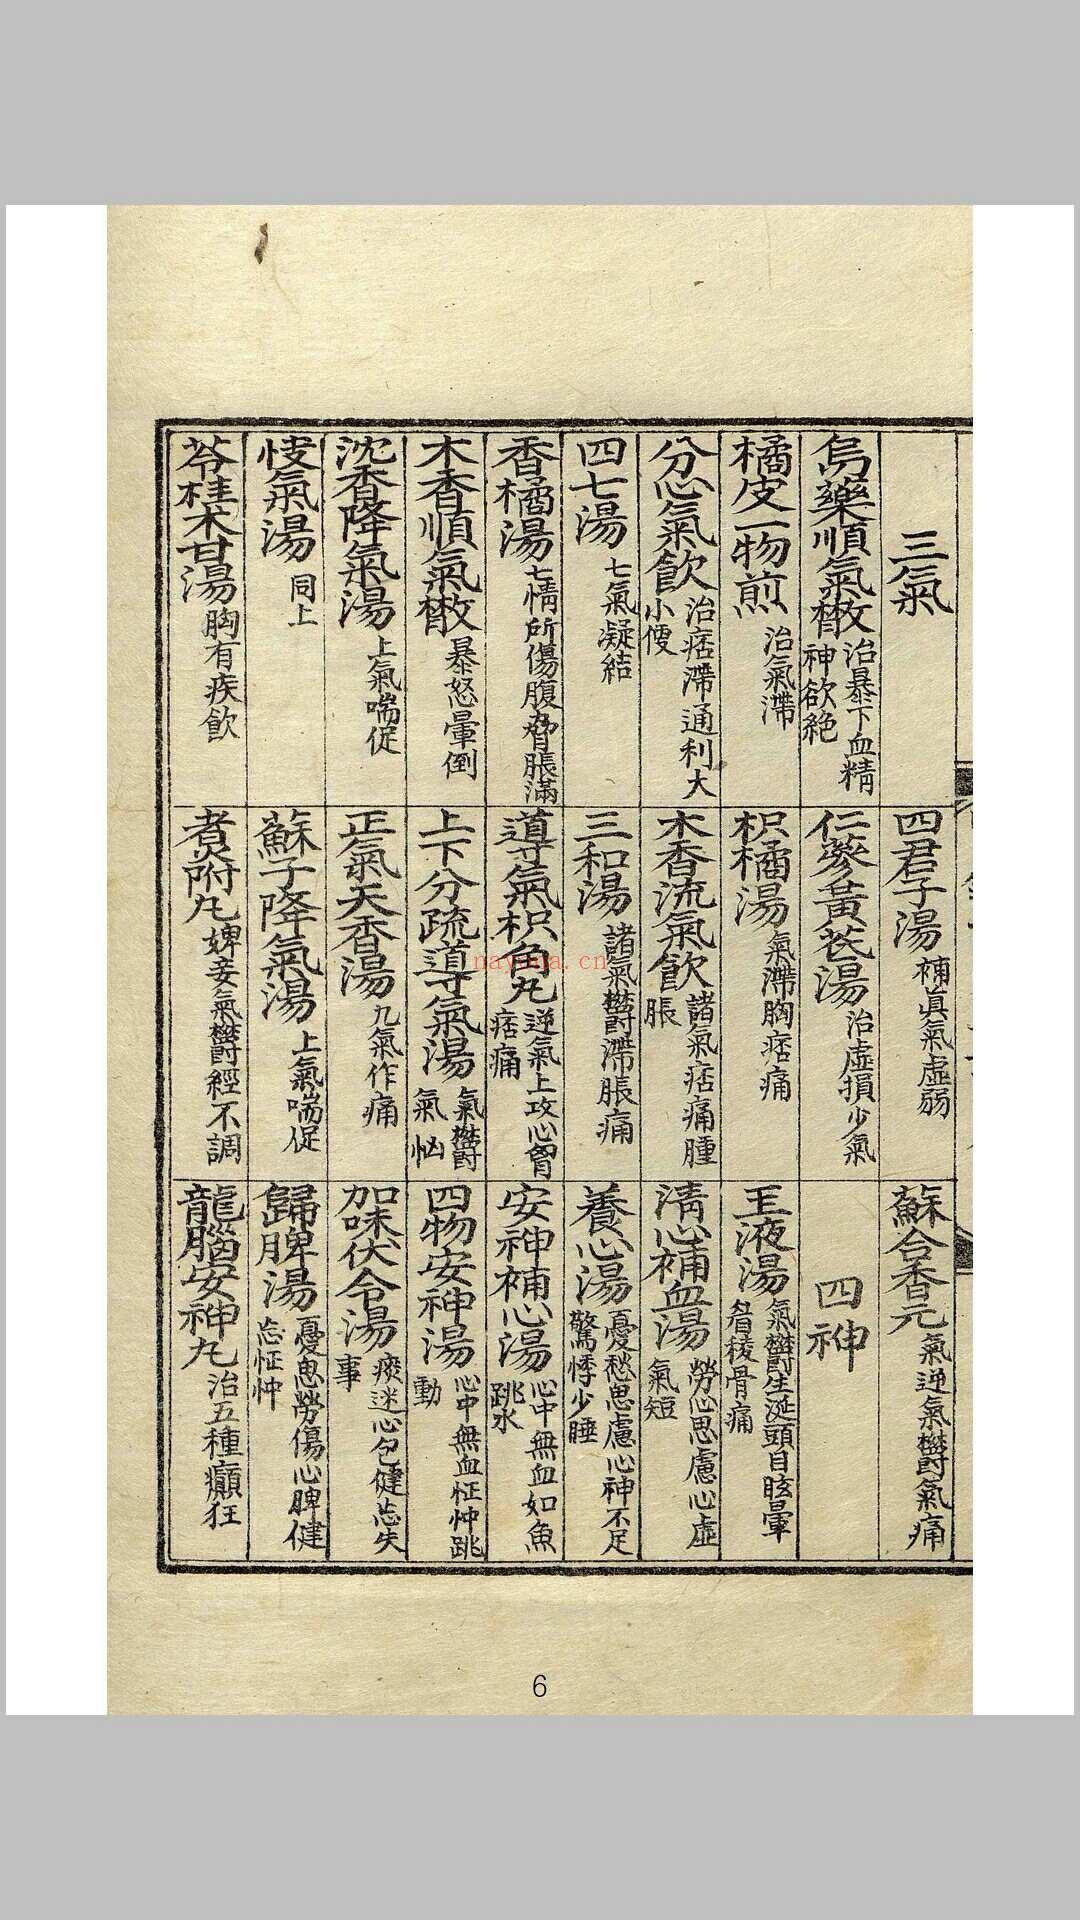 三氣
烏藥順氣散 治暴下血精神欲絶
橘皮一物煎 治氣滯
分心氣飮 治痞滯通利大小便
四七湯 七氣凝結
香橘湯 七情所傷腹脅脹滿
木香順氣散 暴怒暈倒
沈香降氣湯 上氣喘促
快氣湯 同上
苓桂朮甘湯 胸有痰飮
四君子湯 補眞氣虛弱
仁蔘黃芪湯 治虛損少氣
枳橘湯 氣滯胸痞痛
木香流氣飮 諸氣痞痛腫脹
三和湯 諸氣鬱滯脹痛
導氣枳角丸 逆氣上攻心胷痞痛
上下分疏導氣湯 氣鬱氣惱
正氣天香湯 九氣作痛
蘇子降氣湯 上氣喘促
煮附丸 婢妾氣鬱經不調
蘇合香元 氣逆氣鬱氣痛
四神
玉液湯 氣鬱生涎頭目眩暈眉稜骨痛
淸心補血湯 勞心思慮心虛氣短
養心湯 憂愁思慮心神不足驚悸少睡
安神補心湯 心中無血如魚跳水
四物安神湯 心中無血怔忡跳動
加味伏令湯 痰迷心包健忘失事
歸脾湯 憂思勞傷心脾健忘怔忡
龍腦安神丸 治五種癲狂
nayona.cn
6